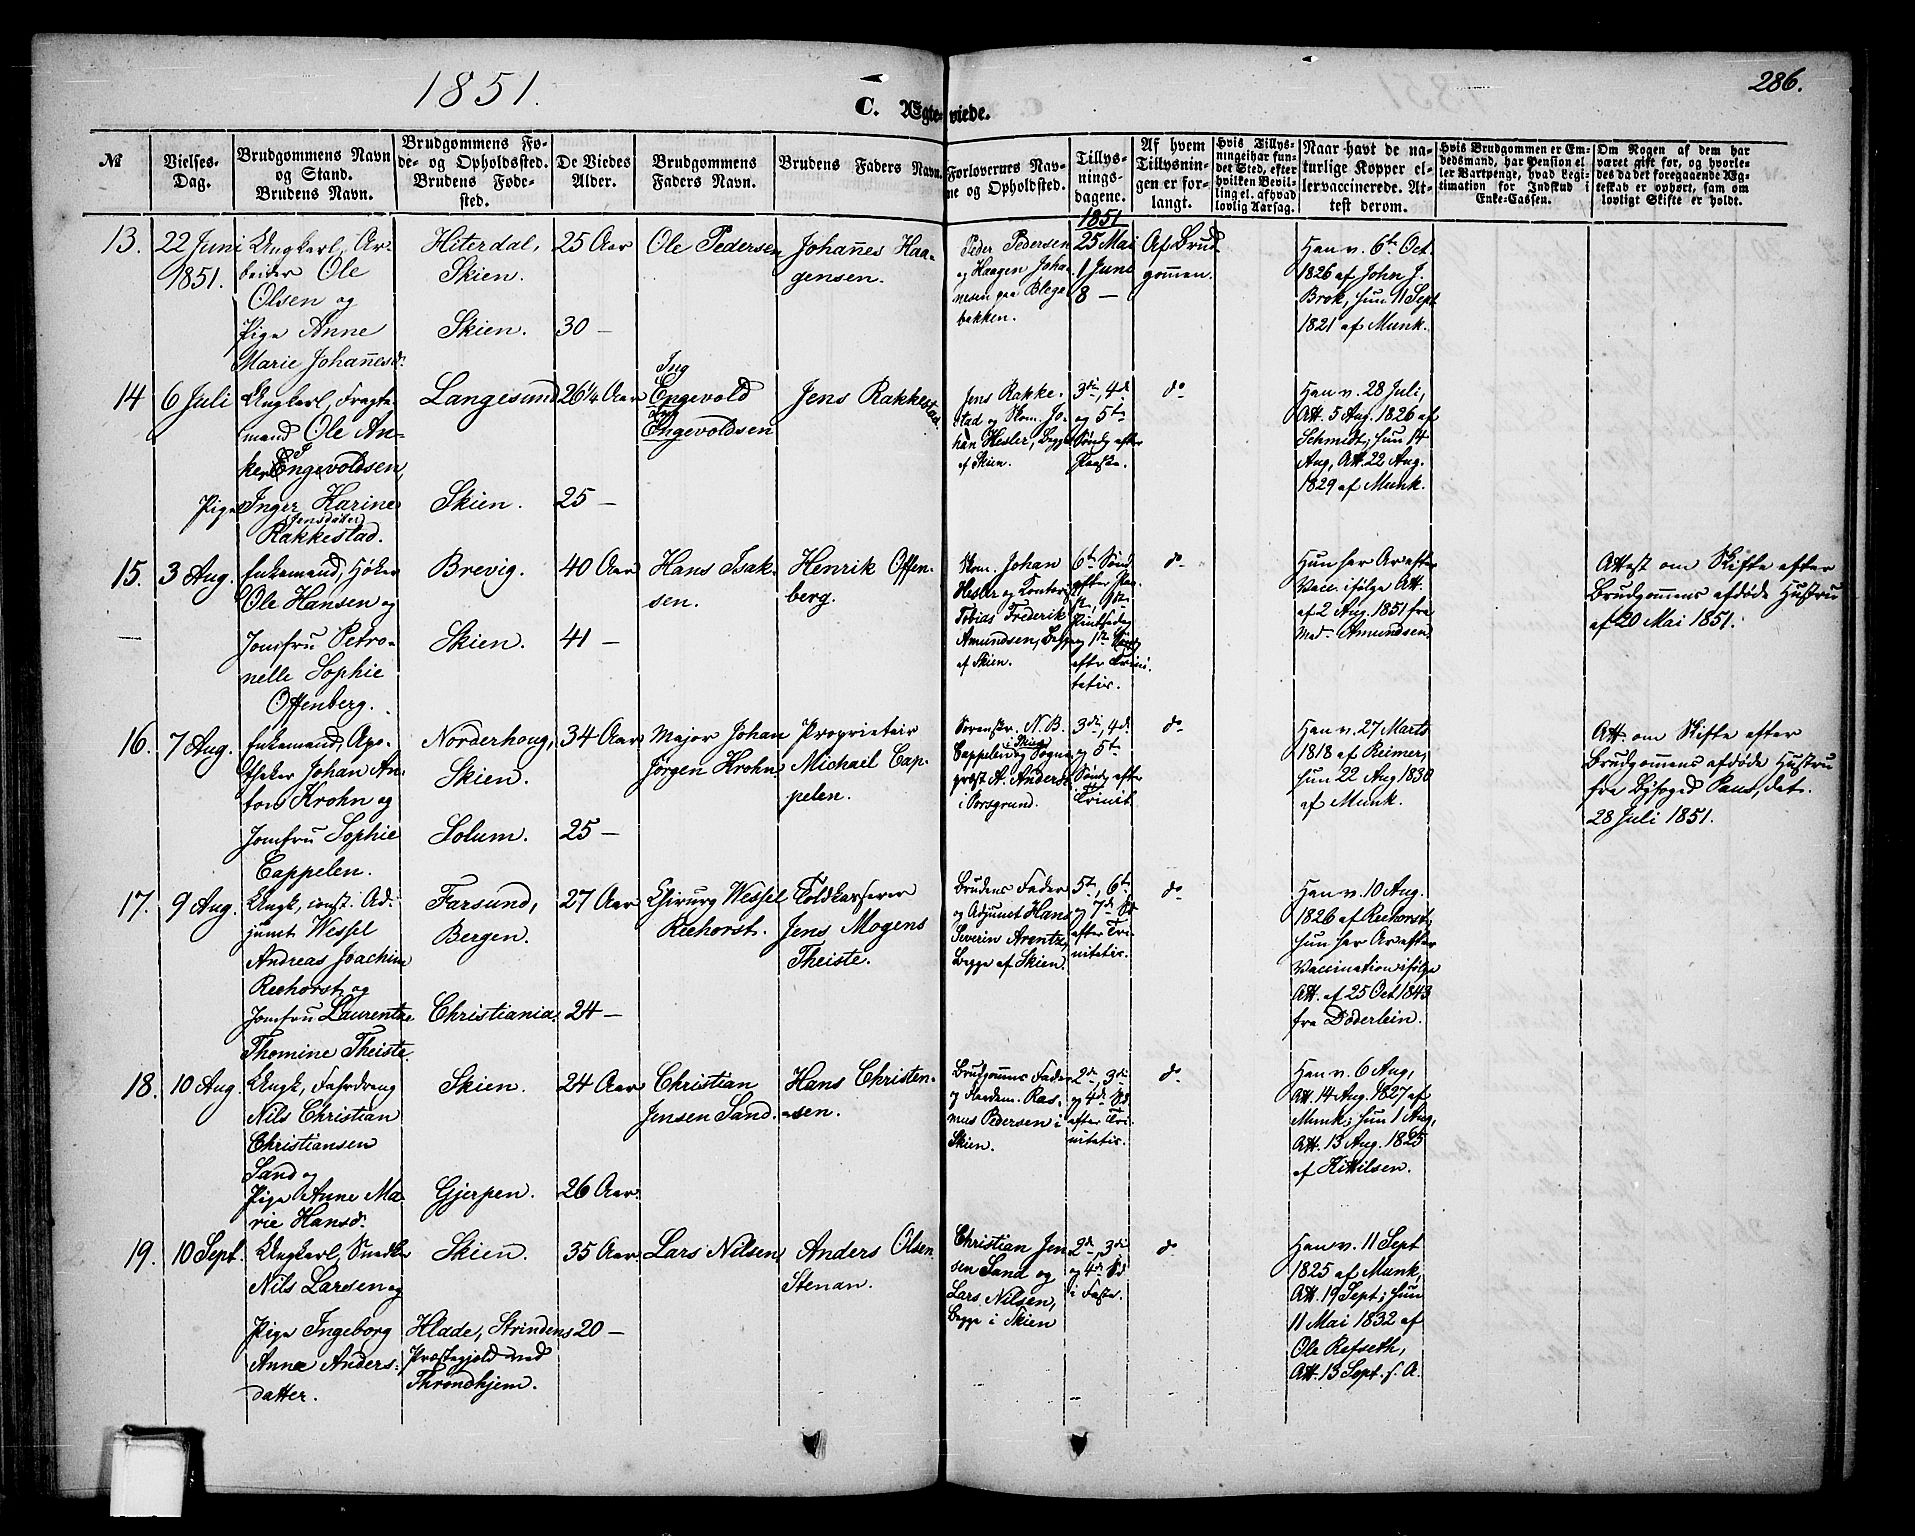 1851.
C. Ægte-viede.
286.
No
Vielses-
Dag.
Brudgommens Navn
og Stand.
Brudens Navn.
Brudgommens Fø-
de- og Opholdssted.
Brudens Føde-
sted.
De Viedes
Alder.
Brudgommens
Faders Navn.
Brudens Faders Navn.
Forlovernes Nav-
ne og Opholdsted.
Tillys-
nings-
dagene.
Af hvem
Tillysnin-
gen er for-
langt.
Hvis Tillys-
ningei har fun-
det Sted, efter
hvilken Bevil-
ling el. af hvad
lovlig Aarsag.
Naar havt de na-
turlige Kopper el-
ler vaccinerede. At-
test derom.
Hvis Brudgommen er Em-
bedsmand, har Pension el-
ler Vartpenge, hvad Legi-
timation for Indskud i
Enke-Cassen.
Om Nogen af dem har
været gift før, og hvorle-
des da det foregaaende Æg-
teskab er ophørt, sam om
lovligt Skifte er holdt.
13.
22 Juni
1851.
Ungkarl, Ar-
beider Ole
Olsen og
Pige Anne
Marie Johañesd.
Hiterdal,
Skien.
Skien.
25 Aar
30 —
Ole Pedersen
Johañes Haa-
gensen.
Peder Pedersen
og Haagen Joha-
nesen paa Blege-
bakken.
1851
25 Mai
1 Juni
8 —
Af Brud-
gom̃en.
Han v. 6te Oct.
1826 af John J.
Brok, hun 11 Sept
1821 af Munk.
14
6 Juli
Ungkarl, Fragte-
mand Ole An-
ker Engevoldsen,
Pige Inger Karine
Jensdatter
Rakkestad.
Langesund
Skien.
26¼ Aar
25 —
Ing
Engevold
Ing
Engevoldsen
Jens Rakkestad.
Jens Rakke-
stad og Skom. Jo-
han Hesler, begge
af Skien.
3die, 4de
og 5te
Søndg efter
Paaske.
do
Han v. 28 Juli,
Att. 5 Aug. 1826 af
Schmidt; hun 14
Aug, Att. 22 Aug.
1829 af Munk.
15.
3 Aug.
Enkemand, Høker
Ole Hansen og
Jomfru Petro-
nelle Sophie
Offenberg.
Brevig.
Skien.
40 Aar
41 —
Hans Isak-
sen.
Henrik Offen-
berg.
Skom. Johan
Hesler og Contorist
Tobias Frederik
Amundsen, begge
af Skien.
6te Sønd
efter Paa-
ske, 1ste
Pintsedag
og 1ste Søndg
efter Trini-
tatis.
do
Hun har Ar efter
Vacc. ifølge Att.
af 2 Aug. 1851 fra
Med. Amundsen.
Attest om Skifte efter
Brudgom̃ens afdøde Hustru
af 20 Mai 1851.
16.
7 Aug.
Enkemand, Apo-
theker Johan An-
ton Krohn og
Jomfru Sophie
Cappelen.
Norderhoug,
Skien.
Solum.
34 Aar
25 —
Major Johan
Jørgen Krohn
Proprietair
Michael Cap-
pelen.
Sorenskr. N. B.
Cappelen i Skien og Sogne-
præst A. Anderse-
i Porsgrund.
3die, 4de
og 5te
Søndg efter
Trinit.
do
Han v. 27 Marts
1818 af Reimer,
hun 22 Aug 1830
af Munk.
Att. om Skifte efter
Brudgom̃ens afdøde Hustru
fra Byfoged Paus, dat.
28 Juli 1851.
17.
9 Aug.
Ungk, const. Ad-
junct Wessel
Andreas Joachim
Reehorst og
Jomfru Laurentze
Thomine Theiste.
Farsund,
Bergen.
Christiania.
27 Aar
24 —
Chirurg Wessel
Reehorst.
Toldkasserer
Jens Mogens
Theiste.
Brudens Fader
og Adjunct Hans
Severin Arentz,
begge af Skien.
5te, 6te
og 7de Sd
efter Tri-
nitatis.
do
Han v. 10 Aug.
1826 af Reehorst,
hun har Ar efter
Vaccination ifølge
Att. af 25 Oct 1843
fra Döderlein.
18.
10 Aug.
Ungk, Fahrdreng
Nils Christian
Christiansen
Sand og
Pige Anne Ma-
rie Hansd.
Skien.
Gjerpen.
24 Aar
26 Aar.
Christian
Jensen Sand.
Hans Christen-
sen.
Brudgom̃ens Fader
og Ras-
mus Pedersen i
Skien.
2de, 3die
og 4de Sd
efter Tri-
nitatis.
do
Han v. 6 Aug,
Att. 14 Aug. 1827 af
Munk; hun 1 Aug,
Att. 13 Aug. 1825
af Kittilsen.
19.
10 Sept.
Ungkarl, Snedker
Nils Larsen og
Pige Ingeborg
Anna Anders-
datter.
Skien.
Hlade, Strindens
Præstegjeld ved
Throndhjem.
35 Aar.
20 —
Lars Nilsen
Anders Olsen
Stenan.
Christian Jen-
sen Sand og
Lars Nilsen,
begge i Skien
2de, 3die
og 4de Sd
i Faste.
do
Han v. 11 Sept
1825 af Munk,
Att. 19 Sept; hun
11 Mai 1832 af
Ole Refseth,
Att. 13 Sept. s. A.